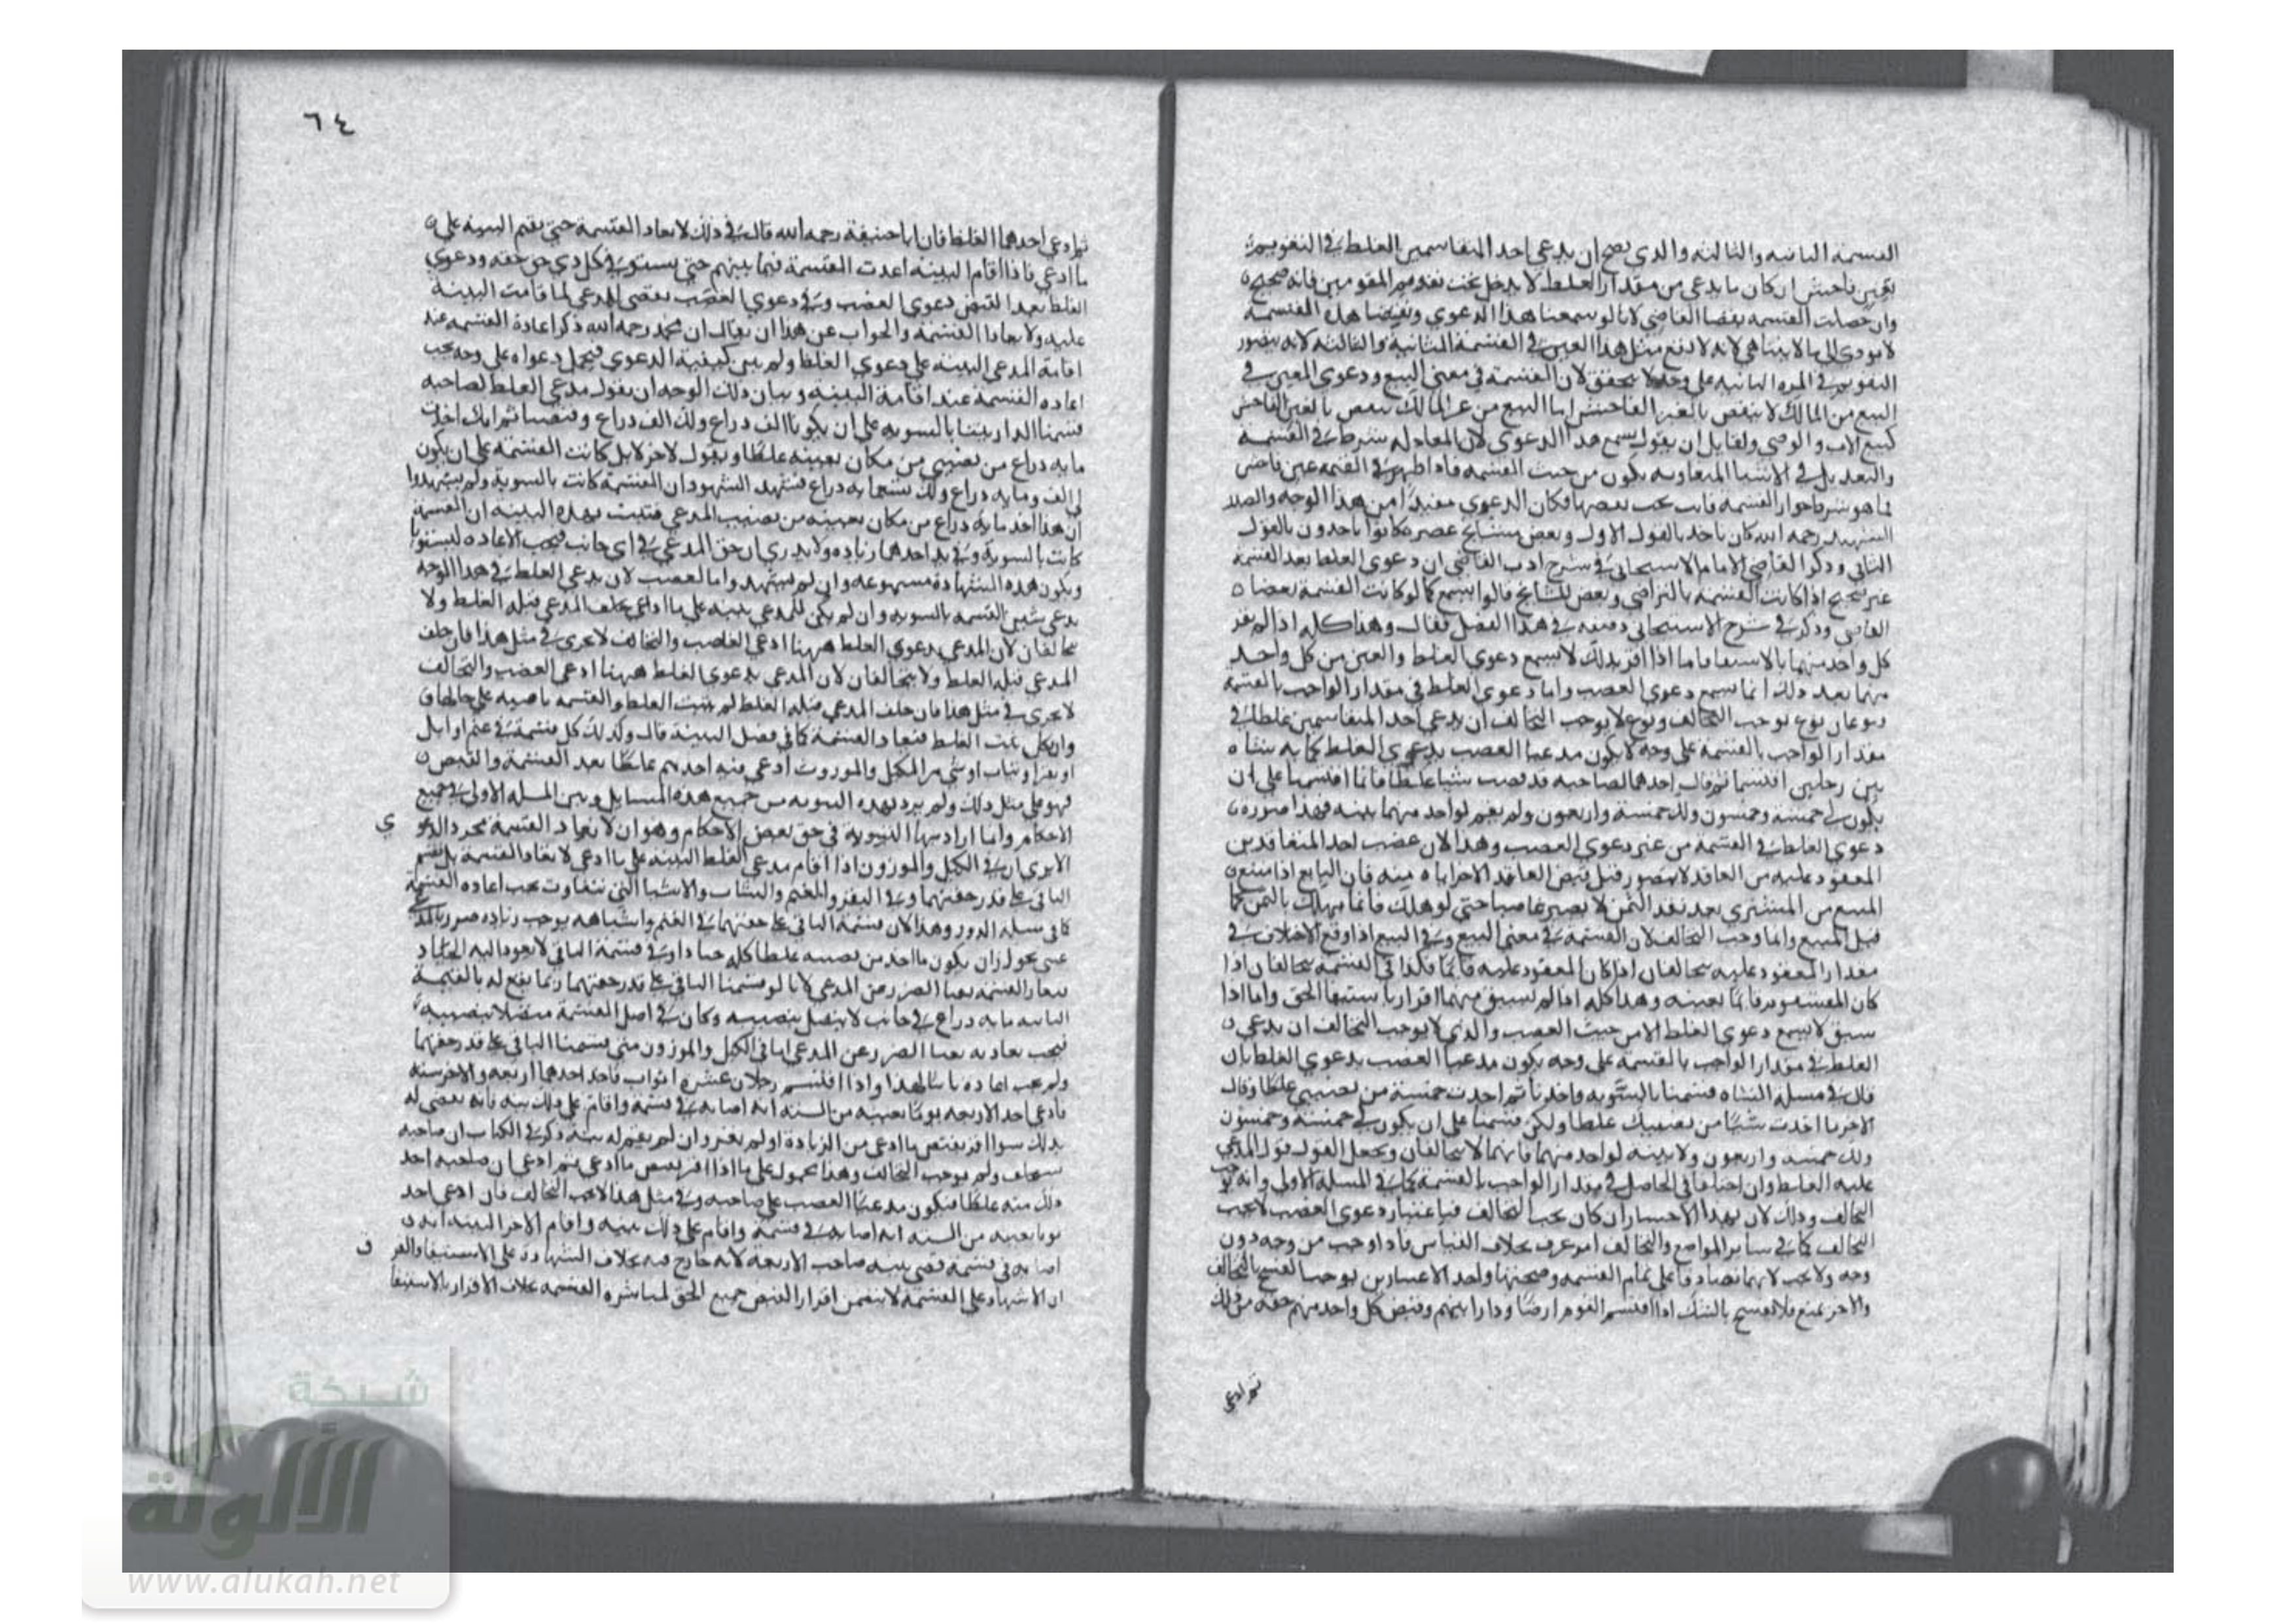 القسمة الثانية والثالثة والذي يصح ان يدعي احد المتقاسمين الغلط في التقويم
بغبن فاحش ان كان ما يدعي من مقدار الغلط لا يدخل تحت تقويم المقومين فانه صحيح
وان حصلت القسمة بقضا القاضي لانا لو سمعنا هذا الدعوي ونقضنا هذه القسمة
لا يودي الى ما لا يتناهي لانه لا يقع مثل هذا الغبن في القسمة الثانية والثالثة لانه يتصور
التقويم في المرة الثانية على وجه لا يتحقق لان القسمة في معنى البيع ودعوي الغبن في
البيع من المالك لا ينقض بالغبن الفاحش اما البيع من غير المالك ينقض بالغبن الفاحش
كبيع الاب والوصي ولقايل ان يقول يسمع هذا الدعوي لان المعادلة شرط في القسمة
والتعديل في الاشيا المتفاوتة يكون من حيث القيمة فاذا ظهر في القيمة غبن فاحش
فما هو شرط جواز القسمة فايت يجب نقضها فكان الدعوي مفيدا من هذا الوجه والصدر
الشهيد رحمه الله كان ياخذ بالقول الاول وبعض مشايخ عصره كانوا ياخذون بالقول
الثاني وذكر القاضي الامام الاسبيجابي في شرح ادب القاضي ان دعوي الغلط بعد القسمة
غير صحيح اذا كانت القسمة بالتراضي وبعض المشايخ قالوا يسمع كما لو كانت القسمة بقضا
القاضي وذكر في شرح الاسبيجابي في هذا الفصل فقال وهذا كله اذا لم يقر
كل واحد منهما بالاستيفا فاما اذا اقر بذلك لا يسمع دعوي الغلط والغبن من كل واحد
منهما بعد ذلك انما يسمع دعوي الغصب واما دعوي الغلط في مقدار الواجب بالقسمة
نوعان نوع يوجب التحالف ونوع لا يوجب التحالف ان يدعي احد المتقاسمين غلطا في
مقدار الواجب بالقسمة على وجه لا يكون مدعيا الغصب بدعوي الغلط كماية شاه
بين رجلين اقتسما ثم قال احدهما لصاحبه قد قبضت شيا غلطا فانا اقتسمنا على ان
يكون لي خمسة وخمسون ولك خمسة واربعون ولم يقم لواحد منهما بينة فهذا صورة
دعوي الغلط في القسمة من غير دعوي الغصب وهذا لان غصب احد المتعاقدين
المعقود عليه من العاقد لا يتصور قبل قبض العاقد الاخر اياه منه فان البايع اذا منع
المبيع من المشتري بعد نقد الثمن لا يصير غاصبا حتى لو هلك فانما يهلك بالثمن كما
قبل المبيع وانما وجب التحالف لان القسمة في معنى البيع وفي البيع اذا وقع الاختلاف في
مقدار المعقود عليه يتحالفان اذا كان المعقود عليه قايما فكذا في القسمة يتحالفان اذا
كان المقسوم قايما بعينه وهذا كله اذا لم يسبق منهما اقرار باستيفا الحق واما اذا
سبق لا يسمع دعوي الغلط الا من حيث الغصب والذي لا يوجب التحالف ان يدعي
الغلط في مقدار الواجب بالقسمة على وجه يكون مدعيا الغصب بدعوي الغلط بان
قال في مسلة الشاه قسمنا بالسوية واخذنا ثم اخذت خمسة من نصيبي غلطا وقال
الاخر ما اخذت شيا من نصيبك غلطا ولكن قسمنا على ان يكون لي خمسة وخمسون
ولك خمسة واربعون ولا بينة لواحد منهما فانهما لا يتحالفان ويجعل القول قول المدعي
عليه الغلط وان اختلفا في الحاصل في مقدار الواجب بالقسمة كما في المسلة الاولى وانه يوجب
التحالف وذلك لان بهذا الاعتبار ان كان يجب التحالف فباعتبار دعوي الغصب لا يجب
التحالف كما في ساير المواضع والتحالف امر عرف بخلاف القياس فاذا وجب من وجه دون
وجه ولا يجب لانهما تصادقا على تمام القسمة وصحتها واحد الاعتبارين يوجب الفسخ بالتحالف
والاخر يمنع فلا يفسخ بالشك اذا اقتسم القوم ارضا ودارا بينهم وقبض كل واحد منهم حقه من ذلك
ثم ادعي
٦٤
ثم ادعي احدهما الغلط فان ابا حنيفة رحمه الله قال في ذلك لا يعاد القسمة حتى يقيم البينة على
ما ادعي فاذا اقام البينة اعدت القسمة فيما بينهم حتى يستوي في كل ذي حق حقه ودعوي
الغلط بعد القبض دعوي الغصب وفي دعوي الغصب يقضى للمدعي لما قامت البينة
عليه ولا يعاد القسمة والجواب عن هذا ان يقال ان محمد رحمه الله ذكر اعادة القسمة عند
اقامة المدعي البينة على دعوي الغلط ولم يبين كيفية الدعوي فيحمل دعواه على وجه يجب
اعادة القسمة عند اقامة البينة وبيان ذلك الوجه ان يقول مدعي الغلط لصاحبه
قسمنا الدار بيننا بالسوية على ان يكون لنا الف ذراع ولك الف ذراع وقبضنا ثم انك اخذت
ماية ذراع من نصيبي من مكان بعينه غلطا ويقول الاخر لا بل كانت القسمة على ان يكون
لي الف وماية ذراع ولك تسعماية ذراع فشهد الشهود ان القسمة كانت بالسوية ولم يشهدوا
ان هذا اخذ ماية ذراع من مكان بعينه من نصيب المدعي فثبت بهذه البينة ان القسمة
كانت بالسوية وفي يد احدهما زيادة ولا يدري ان حق المدعي في اي جانب فيجب الاعادة ليستويا
ويكون هذه الشهادة مسموعة وان لم يشهد واما الغصب لان يدعي الغلط في هذا الوجه
يدعي شيين القسمة بالسوية وان لم يكن للمدعي بينة على ما ادعي يحلف المدعي قبله الغلط ولا
يتحالفان لان المدعي بدعوي الغلط ههنا ادعي الغصب والتحالف لا يجري في مثل هذا فان حلف
المدعي قبله الغلط ولا يتحالفان لان المدعي بدعوي الغلط ههنا ادعي الغصب والتحالف
لا يجري في مثل هذا فان حلف المدعي قبله الغلط لم يثبت الغلط والقسمة ماضية على حالها
وان نكل ثبت الغلط فيعاد القسمة كما في فصل البينة قال وكذلك كل قسمة في غنم او ابل
او بقر او ثياب او شي من المكيل والموزون ادعي فيه احدهم غلطا بعد القسمة والقبض
فهو على مثل ذلك ولم يرد بهذه التسوية من جميع هذه المسايل وبين المسلة الاولى في جميع
الاحكام وانما اراد بها التسوية في حق بعض الاحكام وهو ان لا يعاد القسمة بمجرد الدعوي
الا يري ان في الكيل والموزون اذا اقام مدعي الغلط البينة على ما ادعي لا يعاد القسمة بل يقسم
الباقي على قدر حقهما وفي البقر والغنم والثياب والاشيا التي تتفاوت يجب اعادة القسمة
كما في مسلة الدور وهذا لان قسمة الباقي على حقهما في الغنم واشباهه يوجب زيادة ضرر بالمدعي
عسى يجوز ان يكون ما اخذ من نصيبه غلطا كله جيادا وفي قسمة الباقي لا يعود اليه الجياد
فيعاد القسمة نفيا الضرر عن المدعي لانا لو قسمنا الباقي على قدر حقهما ربما يقع له بالقسمة
الثانية ماية ذراع في جانب لا يتصل بنصيبه وكان في اصل القسمة متصلا بنصيبه
فيجب يعاد به نفيا الضرر عن المدعي اما في الكيل والموزون متى قسمنا الباقي على قدر حقهما
ولم يجب اعادة لهذا واذا اقتسم رجلان عشرة اثواب فاخذ احدهما اربعة والاخر ستة
فادعي اخذ الاربعة ثوبا بعينه من الستة انه اصابه في قسمة واقام على ذلك بينة فانه يقضى له
بذلك سوا اقر بقبض ما ادعي من الزيادة او لم يقر وان لم يقم له بينة ذكر في الكتاب ان صاحبه
يستحلف ولم يوجب التحالف وهذا محمول على ما اذا اقر بقبض ما ادعي ثم ادعي ان صاحبه اخذ
ذلك منه غلطا فيكون مدعيا الغصب على صاحبه وفي مثل هذا لا يجب التحالف فان ادعي احد
ثوبا بعينه من الستة انه اصابه في قسمة واقام على ذلك بينة واقام الاخر البينة انه
اصابه في قسمة قضي ببينة صاحب الاربعة لانه خارج فيه بخلاف الشهادة على الاستيفا والفرق
ان الاشهاد على القسمة لا يتضمن اقرار القبض جميع الحق لمباشرة القسمة بخلاف الاقرار بالاستيفا
شبكة
الألوكة
www.alukah.net